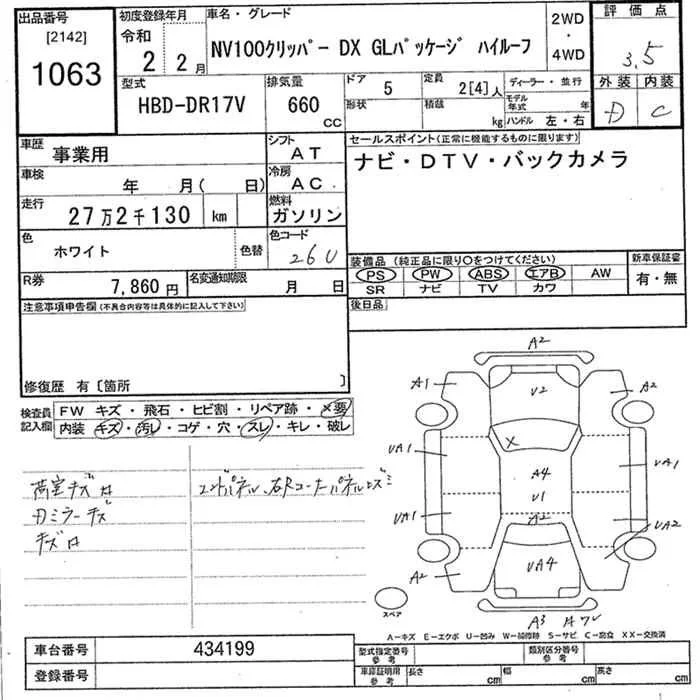 出品番号
[2142]
1063
初度登録年月
令和
2 2月
車名・グレード
NV100クリッパー DX GLパッケージ ハイルーフ
2WD
・
4WD
評価点
3.5
外装 内装
D C
型式
HBD-DR17V
排気量
660
cc
ドア
5
形状
定員
2[4]人
積載
kg
ディーラー・並行
モデル年式 年
ハンドル 左・右
車歴
事業用
シフト
AT
車検
年 月( 日)
冷房
AC
走行
27万2千130 km
燃料
ガソリン
色
ホワイト
色替
色コード
26U
R券
7,860円
名変通知期限
月 日
セールスポイント(正常に機能するものに限ります)
ナビ・DTV・バックカメラ
装備品 (純正品に限り○をつけてください)
PS PW ABS エアB AW
SR ナビ TV カワ
新車保証書
有・無
後日品
注意事項申告欄(不具合内容等は具体的に記入して下さい)
修復歴 有〔箇所 〕
検査員記入欄
FW キズ・飛石・ヒビ割・リペア跡・メ要
内装 キズ・汚レ・コゲ・穴・スレ・キレ・破レ
荷室キズ
カミラーキズ
キズ
エンドパネル、右Rコーナーパネル
A2
A1
V2
A2
X
UA1
A4
UA1
U1
UA1
A2
UA2
A2
UA4
A3
スペア
A-キズ E-エクボ U-凹み W-補修跡 S-サビ C-腐食 XX-交換済
車台番号
434199
登録番号
型式指定番号
参考
類別区分番号
参考
車庫証明用
参考
長さ cm
幅 cm
高さ cm